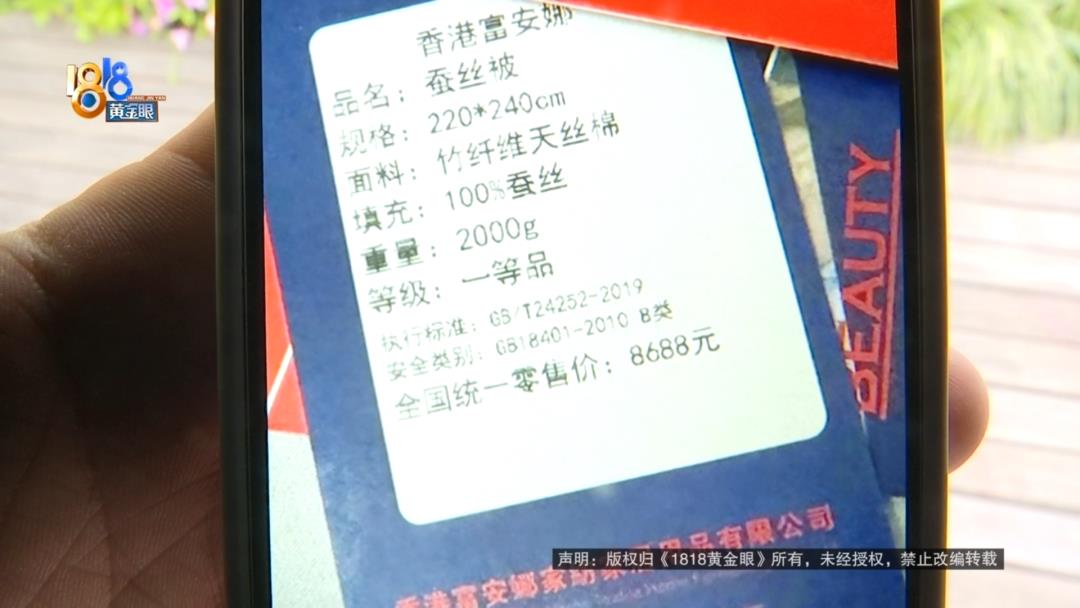 1818
黄金眼
香港富安娜
品名：蚕丝被
规格：220*240cm
面料：竹纤维天丝棉
填充：100%蚕丝
重量：2000g
等级：一等品
执行标准：GB/T24252-2019
安全类别：GB18401-2010 B类
全国统一零售价：8688元
BEAUTY
香港富安娜家纺家居用品有限公司
声明：版权归《1818黄金眼》所有，未经授权，禁止改编转载